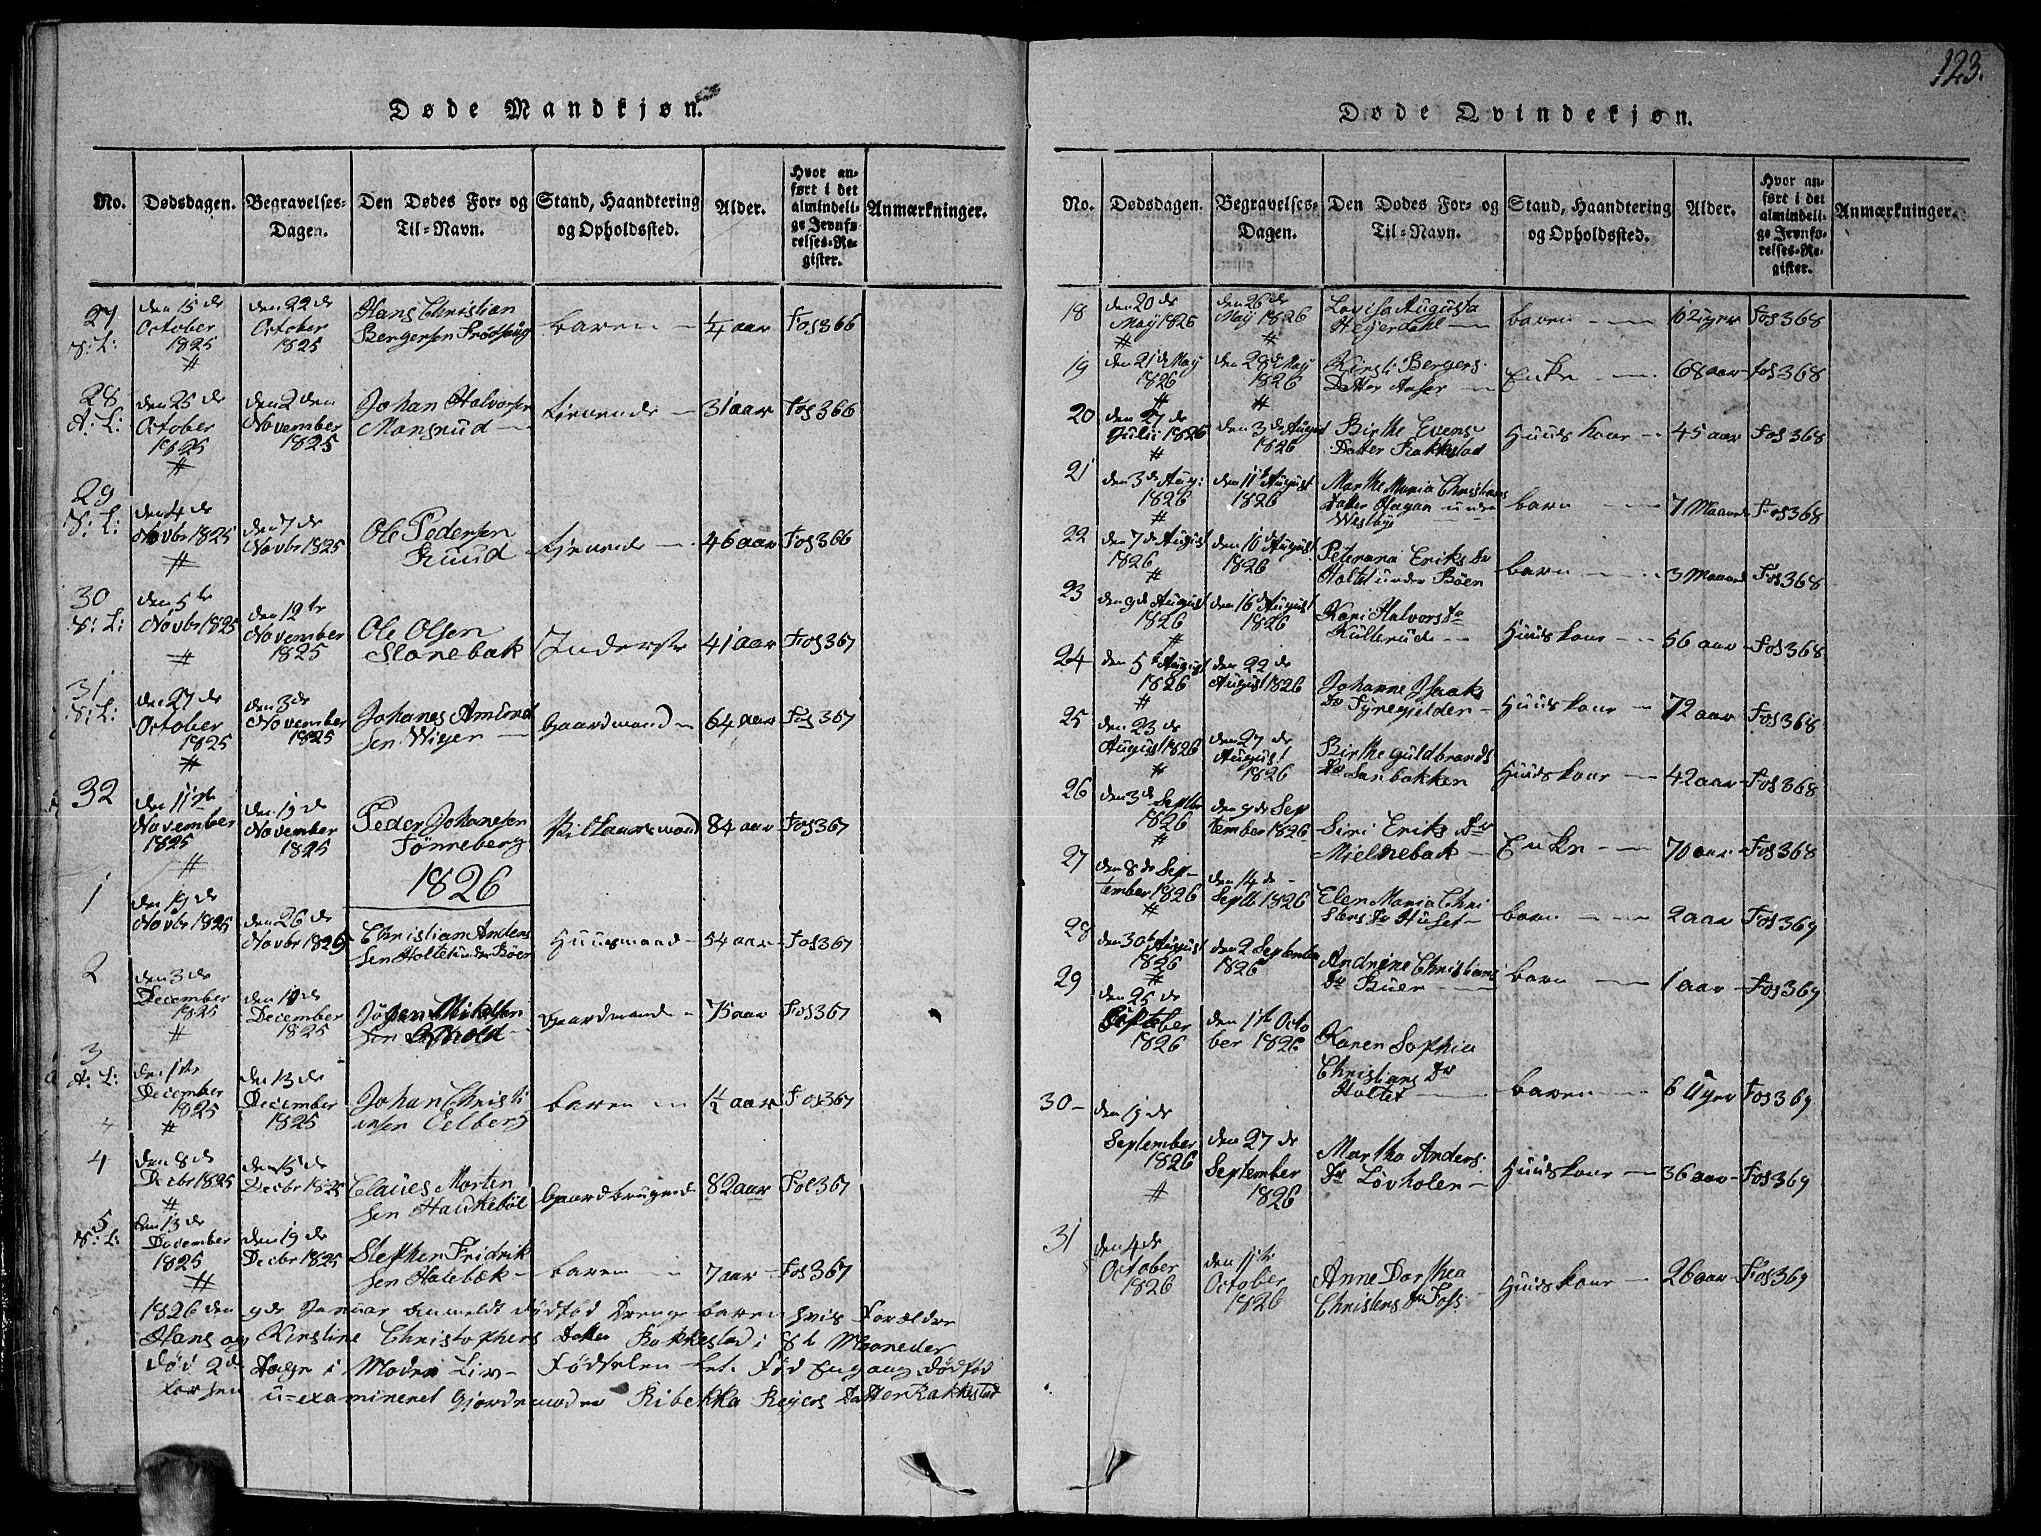 123.
Døde Mandkjøn.
No.
Dødsdagen.
Begravelses-
Dagen.
Den Dødes For- og
Til-Navn.
Stand, Haandtering
og Opholdssted.
Alder.
Hvor an-
ført i det
almindeli-
ge Jevnfø-
relses-Re-
gister.
Anmærkninger.
27 den 15de October 1825 den 22de October 1825 Hans Christian Bergersen baren ¼ aar Fos 366
28 A: L: den 25de October 1825 den 2den November 1825 Johan Halvorsen Mangrud tienende 31 aar Fos 366
29 den 4de Novbr 1825 den 7de Novbr 1825 Ole Pedersen Ruud tienende 46 aar Fos 366
30 den 5te Novbr 1825 den 12te November 1825 Ole Olsen Slorebak Inderste 41 aar Fos 367
31 den 27de October 1825 den 3de November 1825 Johanes Amund sen Wiger Gaardmand 64 aar Fos 367
32 den 11te November 1825 den 19de November 1825 Peder Johansen Tønneberg 84 aar Fos 367
1826
1 den 19de Novbr 1825 den 26de Novbr 1825 Christian Anders sen Holtet under Böer Huusmand 54 aar Fos 367
2 den 3de December 1825 den 10de December 1825 Gaardmand 75 aar Fos 367
3 A: L: den 1ste December 1825 den 13de December 1825 Johan Christi ansen Eelberg baren 1½ aar Fos 367
4 den 8de Decbr 1825 den 15de Decbr 1825 Claues Morten sen Haukeböl Gaardbrugende 82 aar Fos 367
5 den 13de December 1825 den 19de Decbr 1825 Stephen Fridrik sen Holebæk baren 7 aar Fos 367
1826 den 9de Januar anmeldt dödfød Drenge baren hvis Forældre
Hans og Kirstine Christophers Datter Rakkestad i 8de Maaneder
död 2de Dage i Moders Liv Födselen let. Fød Engang Dödfød
u-examineret Gjordemoder Ribekka Reyers Datter Rakkestad
Døde Qvindekjøn.
No.
Dødsdagen.
Begravelses-
Dagen.
Den Dødes For- og
Til-Navn.
Stand, Haandtering
og Opholdssted.
Alder.
Hvor an-
ført i det
almindeli-
ge Jevnfø-
relses-Re-
gister.
Anmærkninger.
18 den 20de May 1826 den 26de May 1826 Lovisa Augusta Heyerdahl baren 6 Uger Fos 368
19 den 21de May 1826 den 29de May 1826 Kirsti Bergers Datter Enke 68 aar Fos 368
20 den 27de Julii 1826 den 3de August 1826 Birthe Evens Datter Rakkestad Huuskone 45 aar Fos 368
21 den 3de Aug: 1826 den 11te August 1826 Marthe Maria Christians Datter Hagan under Westby baren 7 Maaneder Fos 368
22 den 7de August 1826 den 10de August 1826 Peternna Eriks Dr Holtet under Böen baren 3 Maaned Fos 368
23 den 9de August 1826 den 16de August 1826 Kari Halvors Dr Kullerud Huuskone 56 aar Fos 368
24 den 5te August 1826 den 22de August 1826 Johanne Isaaks Dr Fyregielden Huuskone 72 aar Fos 368
25 den 23de August 1826 den 27de August 1826 Birthe Guldbrands Dr Sanbakken Huuskone 42 aar Fos 368
26 den 3de Septb 1826 den 9de September 1826 Siri Eriks Dr Mielnebak Enke 70 aar Fos 368
27 den 8de September 1826 den 14de Septb 1826 Elen Maria Chri stens Dr Huset baren 2 aar Fos 369
28 den 30te August 1826 den 2 September 1826 Andrine Christians Dr Buer baren 1 aar Fos 369
29 den 25de September 1826 den 1ste October 1826 Karen Sophia Christians Dr Holtet baren 6 Uger Fos 369
30 den 19de September 1826 den 27de September 1826 Martha Anders Dr Lövholen Huuskone 36 aar Fos 369
31 den 4de October 1826 den 11te October 1826 Anne Dorthea Christens Dr Foss Huuskone 26 aar Fos 369